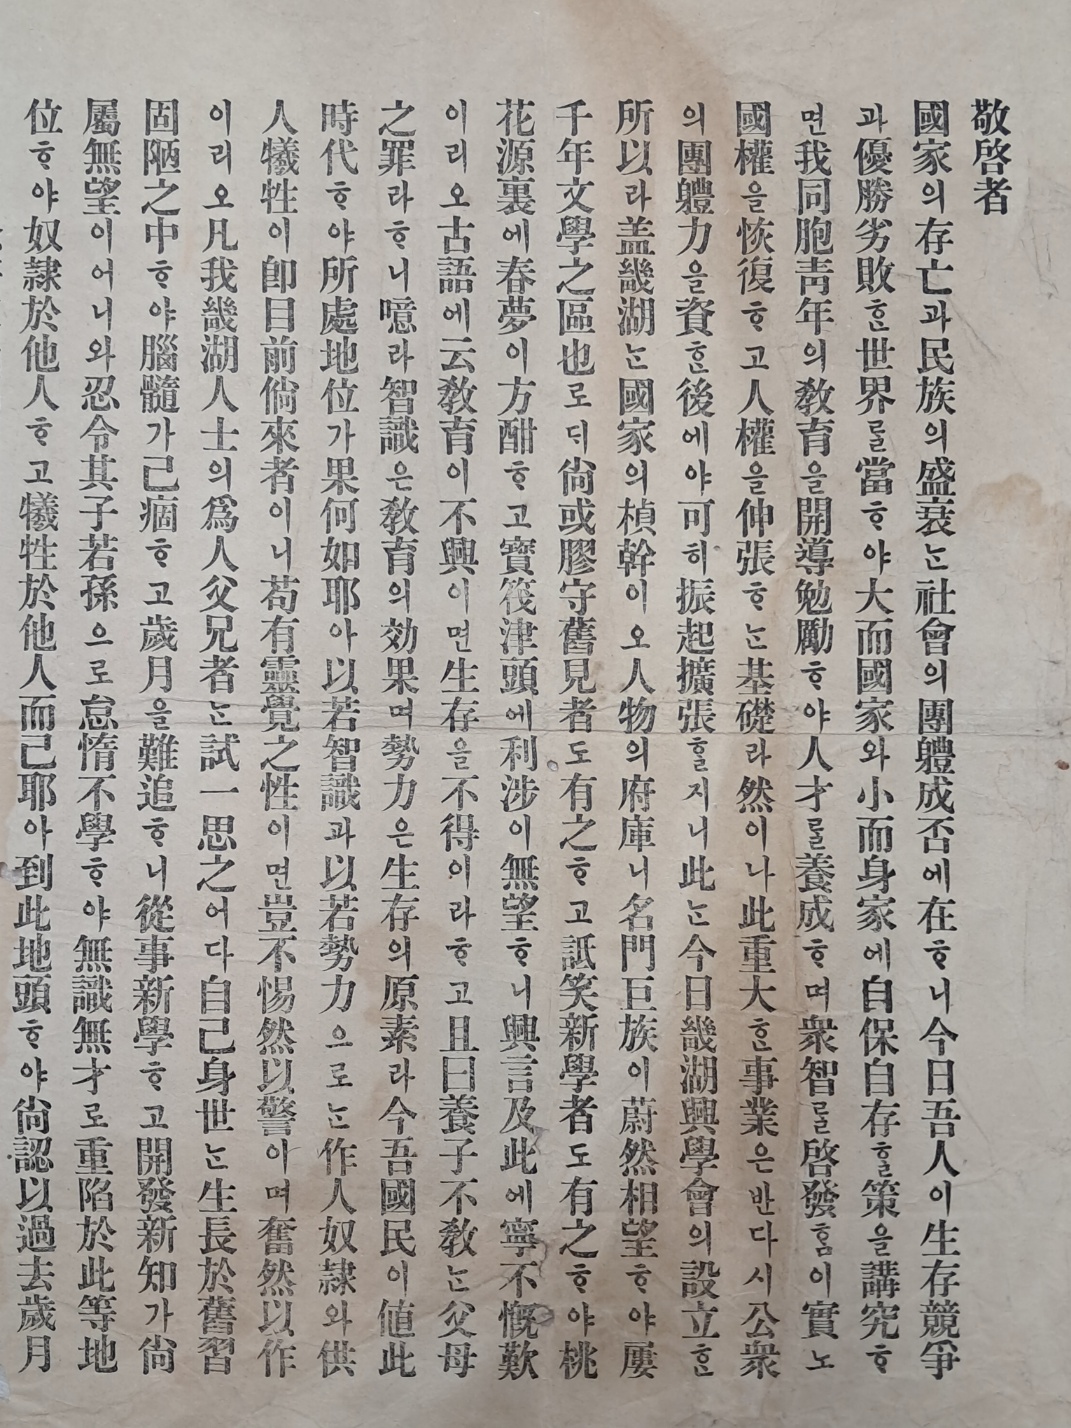 敬啓者
國家의存亡과民族의盛衰ᄂᆞᆫ社會의團軆成否에在ᄒᆞ니今日吾人이生存競爭
과優勝劣敗ᄒᆞᆫ世界ᄅᆞᆯ當ᄒᆞ야大而國家와小而身家에自保自存ᄒᆞᆯ策을講究ᄒᆞ
면我同胞靑年의敎育을開導勉勵ᄒᆞ야人才ᄅᆞᆯ養成ᄒᆞ며衆智ᄅᆞᆯ啓發ᄒᆞᆷ이實노
國權을恢復ᄒᆞ고人權을伸張ᄒᆞᄂᆞᆫ基礎라然이나此重大ᄒᆞᆫ事業은반다시公衆
의團軆力을資ᄒᆞᆫ後에야可히振起擴張ᄒᆞᆯ지니此ᄂᆞᆫ今日畿湖興學會의設立ᄒᆞᆫ
所以라盖畿湖ᄂᆞᆫ國家의楨幹이오人物의府庫니名門巨族이蔚然相望ᄒᆞ야屢
千年文學之區也로ᄃᆡ尙或膠守舊見者도有之ᄒᆞ고詆笑新學者도有之ᄒᆞ야桃
花源裏에春夢이方酣ᄒᆞ고寶筏津頭에利涉이無望ᄒᆞ니興言及此에寧不慨歎
이리오古語에云敎育이不興이면生存을不得이라ᄒᆞ고且曰養子不敎ᄂᆞᆫ父母
之罪라ᄒᆞ니噫라智識은敎育의効果며勢力은生存의原素라今吾國民이値此
時代ᄒᆞ야所處地位가果何如耶아以若智識과以若勢力으로ᄂᆞᆫ作人奴隷와供
人犧牲이卽目前倘來者이니苟有靈覺之性이면豈不惕然以警아며奮然以作
이리오凡我畿湖人士의爲人父兄者ᄂᆞᆫ試一思之어다自己身世ᄂᆞᆫ生長於舊習
固陋之中ᄒᆞ야腦髓가已痼ᄒᆞ고歲月을難追ᄒᆞ니從事新學ᄒᆞ고開發新知가尙
屬無望이어니와忍令其子若孫으로怠惰不學ᄒᆞ야無識無才로重陷於此等地
位ᄒᆞ야奴隷於他人ᄒᆞ고犧牲於他人而已耶아到此地頭ᄒᆞ야尙認以過去歲月